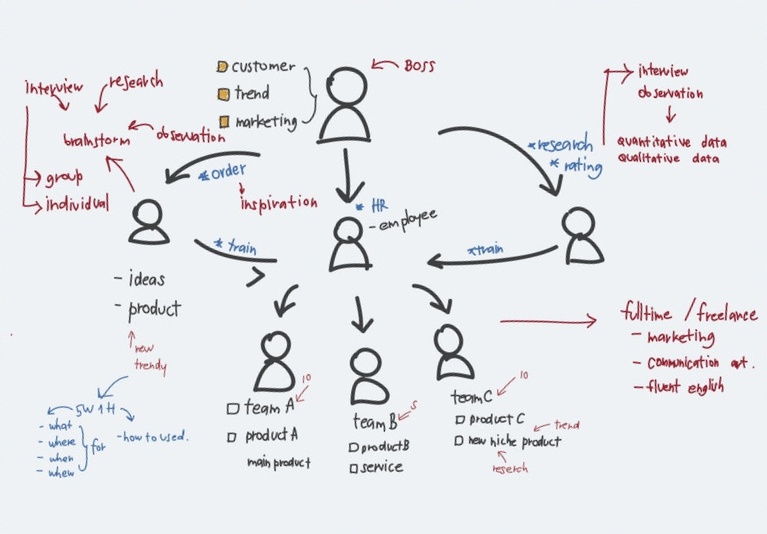 customer
trend
marketing
BOSS
interview
research
brainstorm
observation
group
individual
interview
observation
quantitative data
qualitative data
*research
*rating
*order
inspiration
* HR
- employee
* train
*train
- ideas
- product
new
trendy
5W1H
- what
- where
- when
- whew
for
- how to used.
10
team A
product A
main product
5
team B
product B
service
10
team C
product C
new niche product
trend
reserch
fulltime / freelance
- marketing
- communication
- fluent english